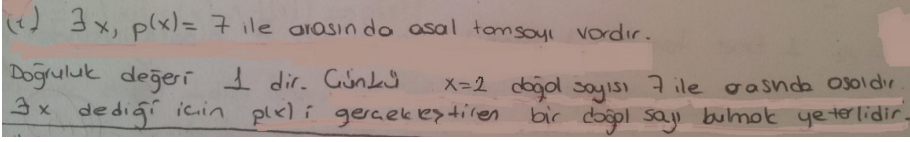 (i) ∃x, p(x)= 7 ile arasında asal tamsayı vardır.
Doğruluk değeri 1 dir. Çünkü x=2 doğal sayısı 7 ile arasında asaldır.
∃x dediği için p(x) i gerçekleştiren bir doğal sayı bulmak yeterlidir.